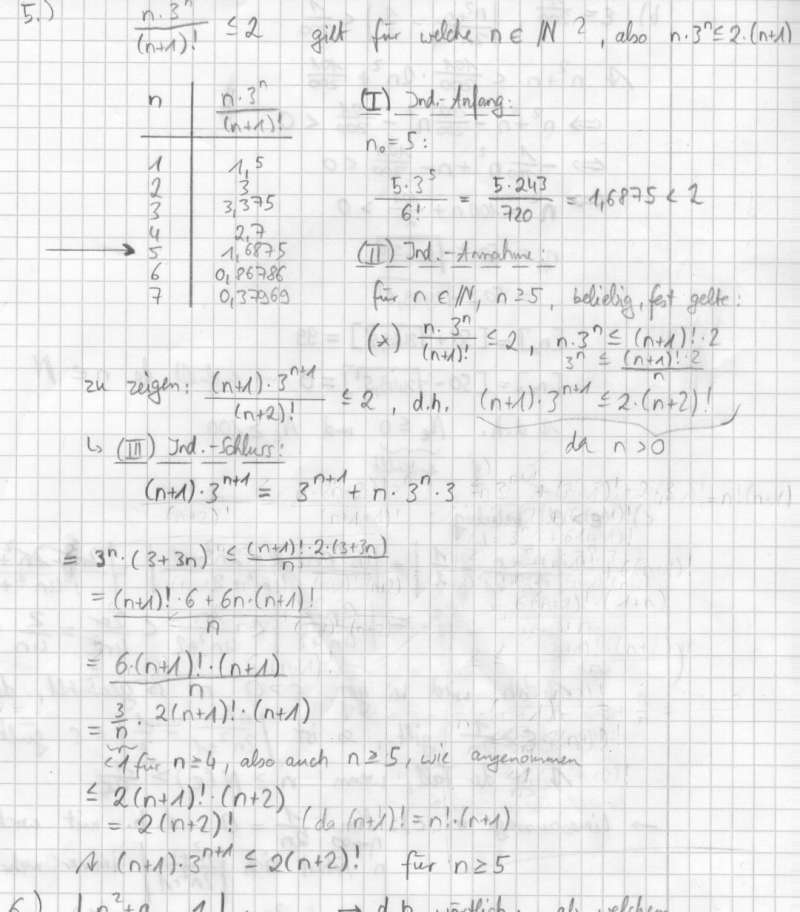 5.) n·3^n/(n+1)! ≤ 2 gilt für welche n ∈ ℕ ?, also n·3^n ≤ 2·(n+1)
n | n·3^n/(n+1)!
1 | 1,5
2 | 3
3 | 3,375
4 | 2,7
→ 5 | 1,6875
6 | 0,86786
7 | 0,37969
(I) Ind.-Anfang:
n₀ = 5:
5·3^5/6! = 5·243/720 = 1,6875 < 2
(II) Ind.-Annahme:
für n ∈ ℕ, n ≥ 5, beliebig, fest gelte:
(*) n·3^n/(n+1)! ≤ 2, n·3^n ≤ (n+1)!·2
3^n ≤ (n+1)!·2/n
zu zeigen: (n+1)·3^(n+1)/(n+2)! ≤ 2, d.h. (n+1)·3^(n+1) ≤ 2·(n+2)!
da n > 0
↳ (III) Ind.-Schluss:
(n+1)·3^(n+1) = 3^(n+1) + n·3^n·3
= 3^n·(3+3n) ≤ (n+1)!·2·(3+3n)/n
= (n+1)!·6 + 6n·(n+1)!/n
= 6·(n+1)!·(n+1)/n
= 3/n · 2(n+1)!·(n+1)
<1 für n ≥ 4, also auch n ≥ 5, wie angenommen
≤ 2(n+1)!·(n+2)
= 2(n+2)! (da (n+1)! = n!·(n+1))
(n+1)·3^(n+1) ≤ 2(n+2)! für n ≥ 5